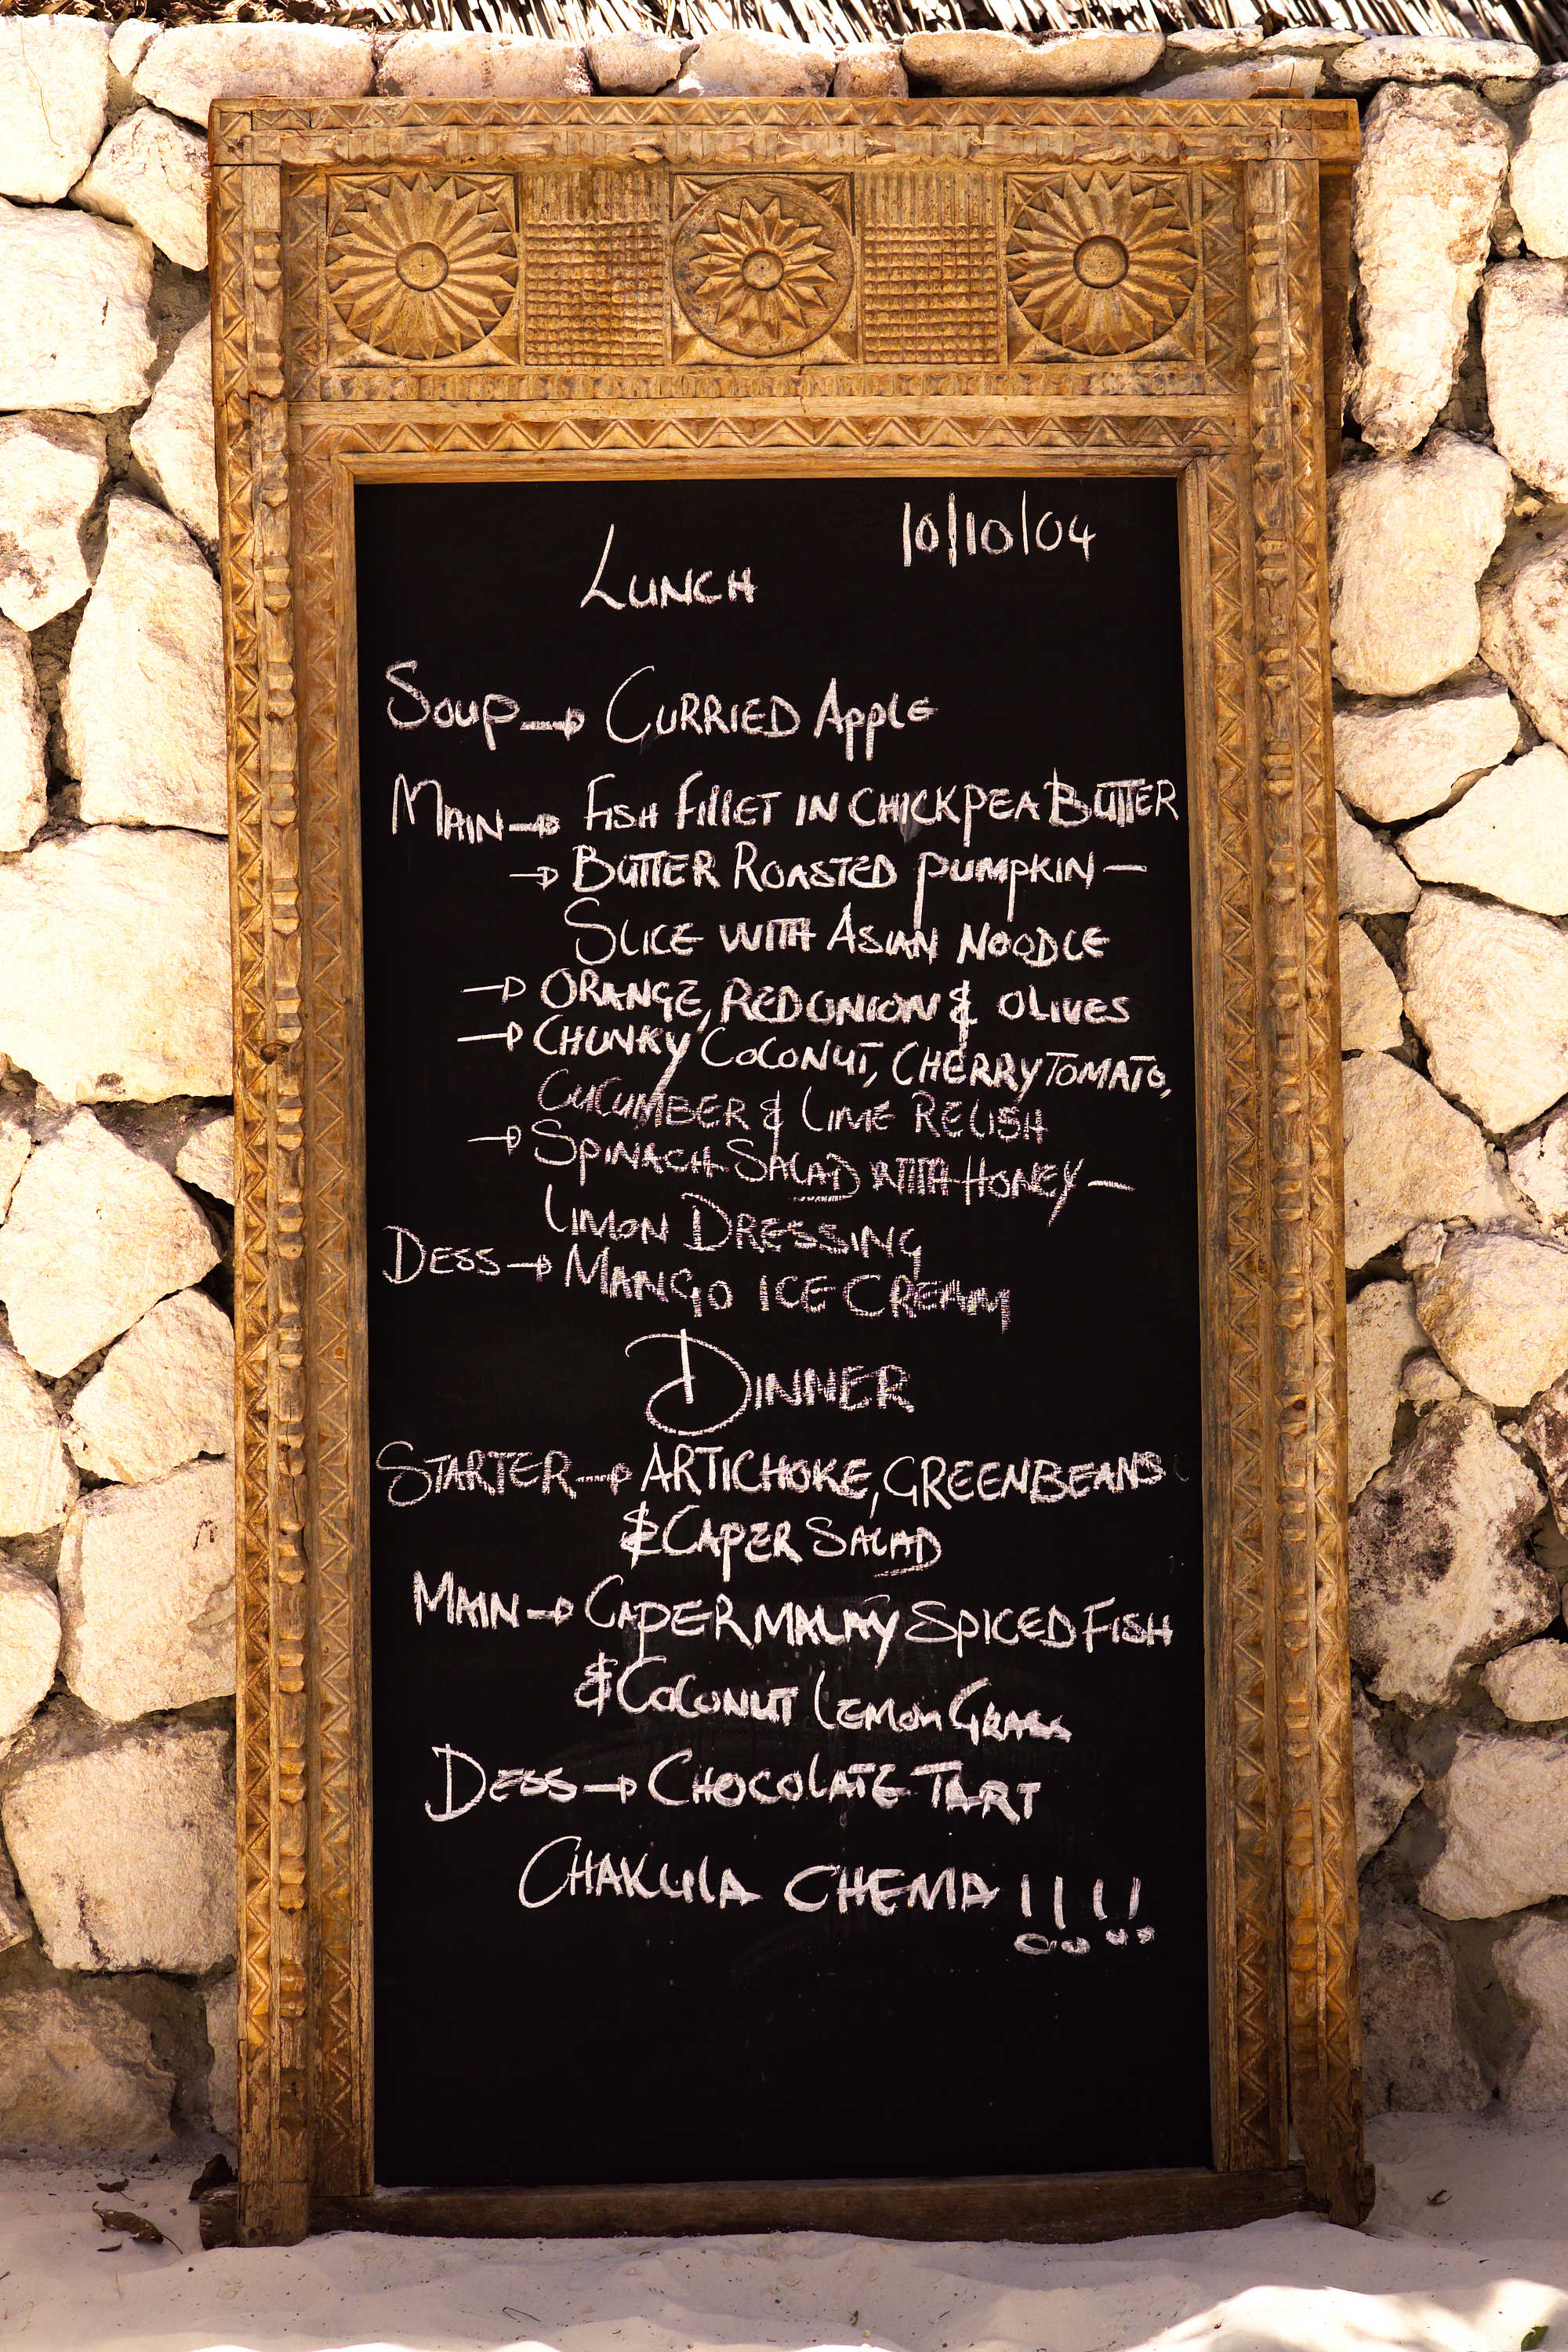 10/10/04
LUNCH
SOUP → CURRIED APPLE
MAIN → FISH FILLET IN CHICKPEA BUTTER
→ BUTTER ROASTED PUMPKIN –
SLICE WITH ASIAN NOODLE
→ ORANGE, RED ONION & OLIVES
→ CHUNKY COCONUT, CHERRY TOMATO,
CUCUMBER & LIME RELISH
→ SPINACH SALAD WITH HONEY –
LIMON DRESSING
DESS → MANGO ICE CREAM
DINNER
STARTER → ARTICHOKE, GREEN BEANS
& CAPER SALAD
MAIN → CAPER MALAY SPICED FISH
& COCONUT LEMON GRASS
DESS → CHOCOLATE TART
CHAKULA CHEMA !!!!